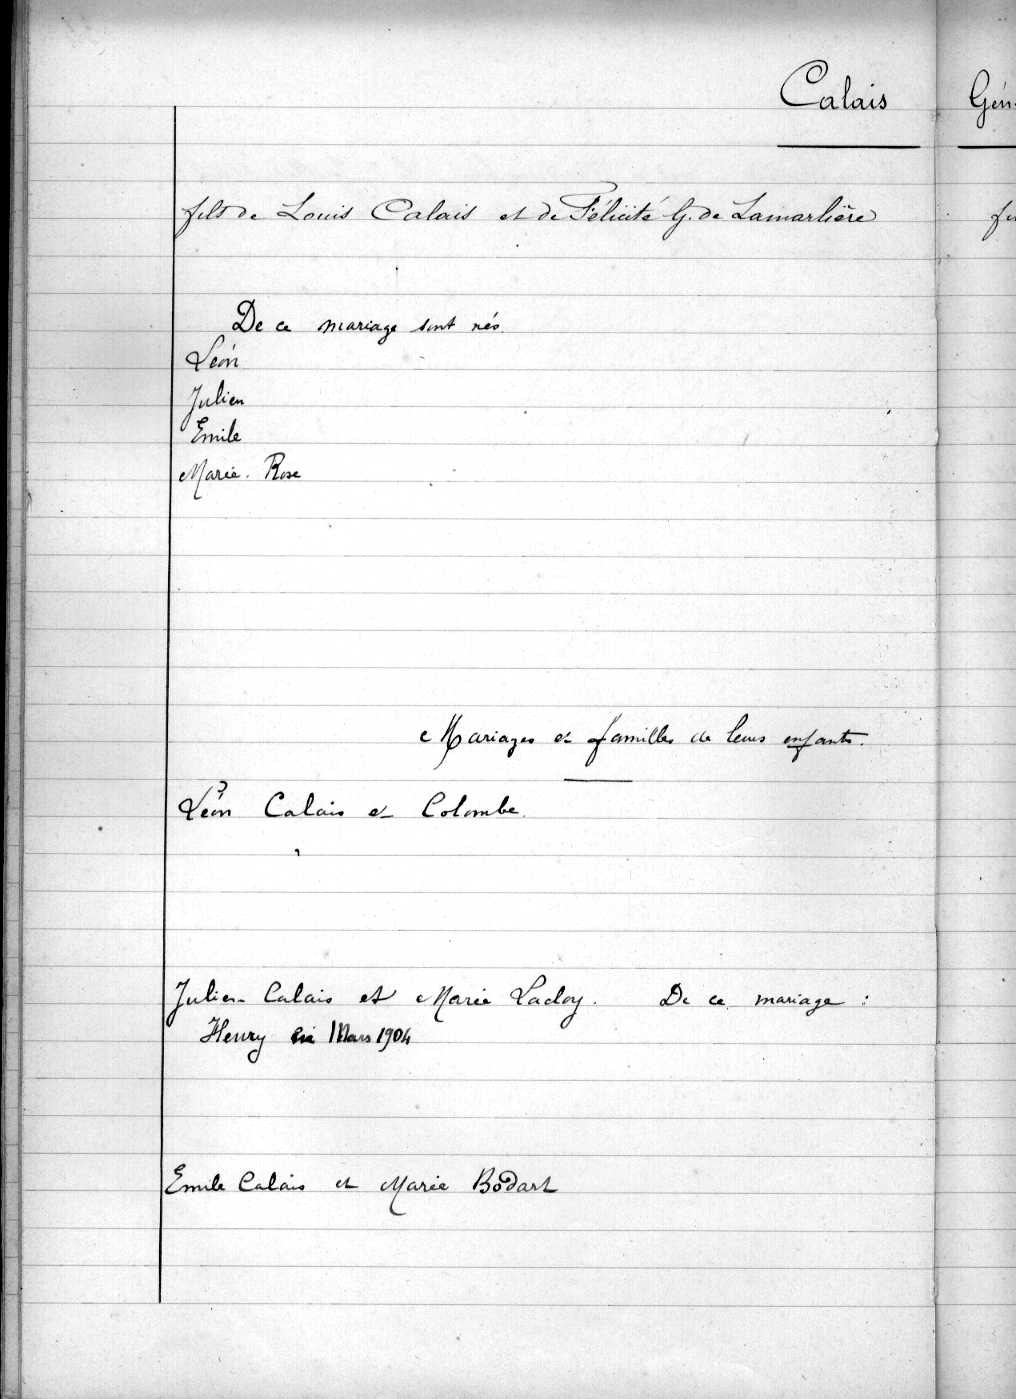 Calais
Gén
fils de Louis Calais et de Félicité G. de Lamarlière
De ce mariage sont nés
Léon
Julien
Emile
Marie. Rose
Mariages et familles de leurs enfants.
Léon Calais et Colombe.
Julien Calais et Marie Ladoy. De ce mariage :
Henry Mars 1904
Emile Calais et Marie Bodart